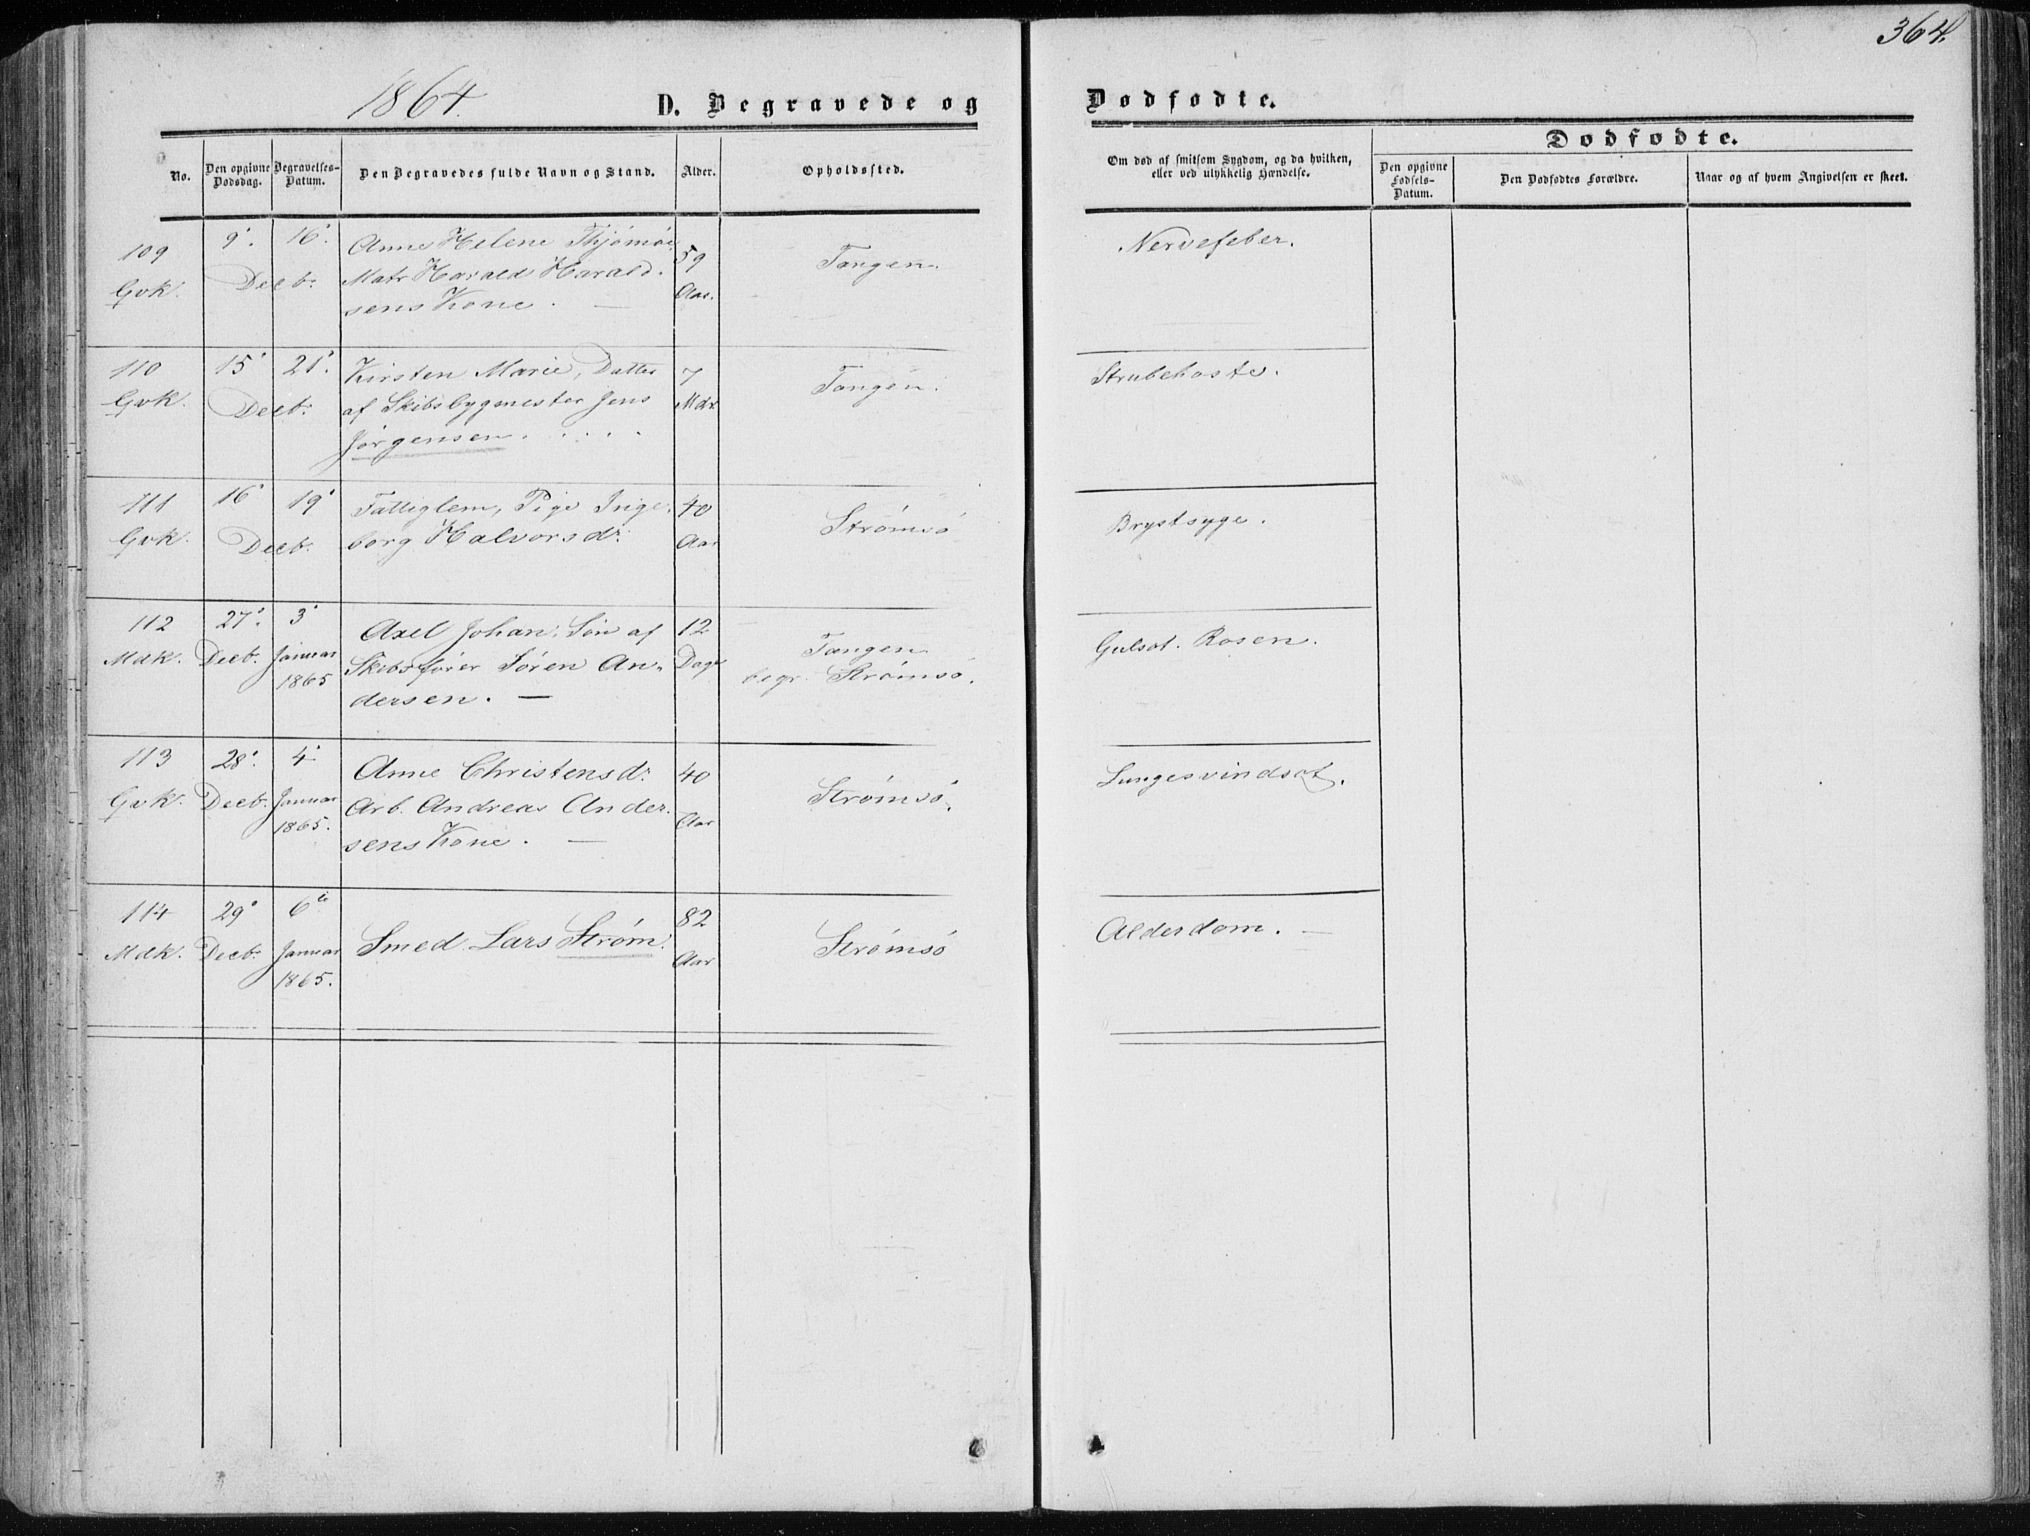 364.
1864.
D. Begravede og Dødfødte.
Dødfødte.
No.
Den opgivne Dødsdag.
Begravelses-Datum.
Den Begravedes fulde Navn og Stand.
Alder.
Opholdssted.
Om død af smitsom Sygdom, og da hvilken, eller ved ulykkelig Hændelse.
Den opgivne Fødsels-Datum.
Den Dødfødtes Forældre.
Naar og af hvem Angivelsen er skeet.
109 Gvk.
9. 16. Decb.
Anne Helene Thjömöe
Matr Harald Harald-
sens Kone. —
59 Aar.
Tangen.
Nervefeber.
110 Gvk.
15. 21. Decb.
Kirsten Marie, Datter
af Skibsbygmester Jens
Jörgensen.
7 Mdr
Tangen.
Strubehoste.
111 Gvk.
16. 19. Decb.
Fattiglem, Pige Inge-
borg Halvorsdr.
40 Aar
Strømsö
Brystsyge.
112 Mdk.
27. Decb.
3. Januar 1865
Axel Johan, Sön af
Skibsfører Sören An-
dersen. —
12 Dage
Tangen
begr. Strømsö.
Gulsot. Rosen.
113 Gvk.
28. Decb.
4. Januar 1865.
Anne Christensdr.
Arb. Andreas Ander-
sens Kone. —
40 Aar
Strømsö.
Lungesvindsot.
114 Mdk.
29. Decb.
6te Januar 1865.
Smed Lars Strøm.
82 Aar
Strømsö
Alderdom. —